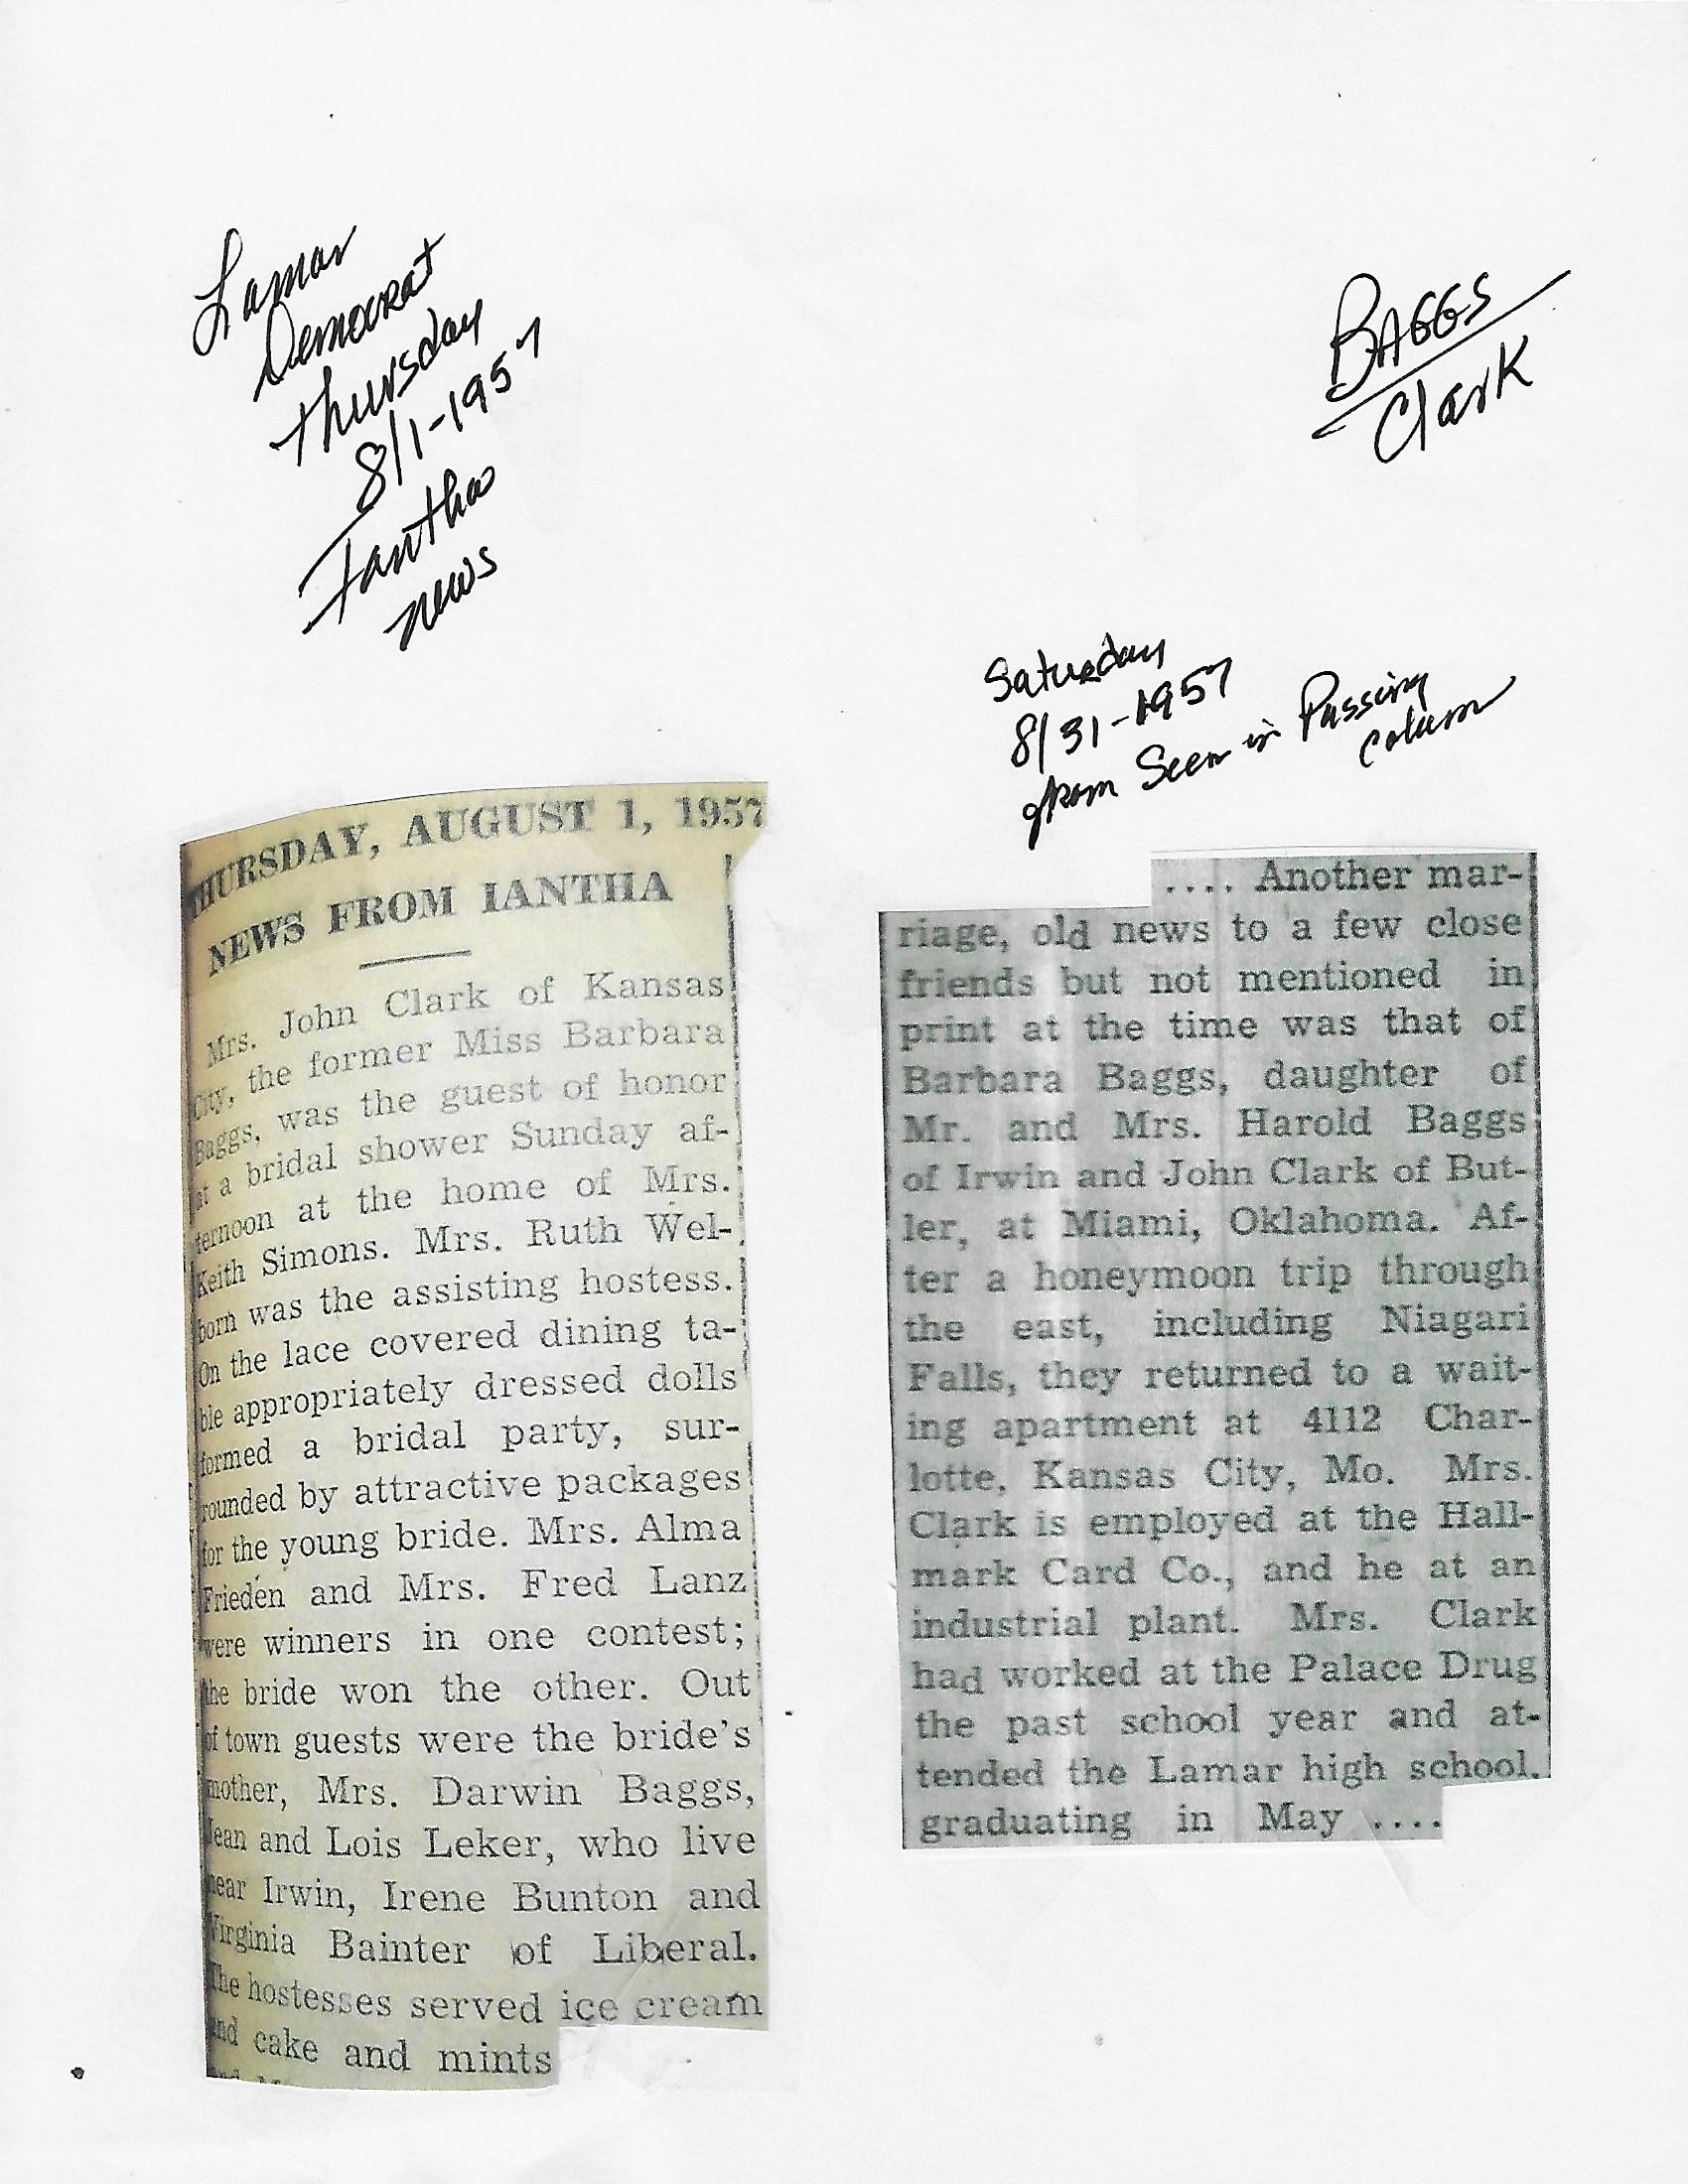 Lamar
Democrat
Thursday
8/1-1957
Iantha
News
BAGGS
Clark
Saturday
8/31-1957
from Seen in Passing
Column
THURSDAY, AUGUST 1, 1957
NEWS FROM IANTHA
Mrs. John Clark of Kansas
City, the former Miss Barbara
Baggs, was the guest of honor
at a bridal shower Sunday af-
ternoon at the home of Mrs.
Keith Simons. Mrs. Ruth Wel-
born was the assisting hostess.
On the lace covered dining ta-
ble appropriately dressed dolls
formed a bridal party, sur-
rounded by attractive packages
for the young bride. Mrs. Alma
Frieden and Mrs. Fred Lanz
were winners in one contest;
the bride won the other. Out
of town guests were the bride's
mother, Mrs. Darwin Baggs,
Jean and Lois Leker, who live
near Irwin, Irene Bunton and
Virginia Bainter of Liberal.
The hostesses served ice cream
and cake and mints
.... Another mar-
riage, old news to a few close
friends but not mentioned in
print at the time was that of
Barbara Baggs, daughter of
Mr. and Mrs. Harold Baggs
of Irwin and John Clark of But-
ler, at Miami, Oklahoma. Af-
ter a honeymoon trip through
the east, including Niagari
Falls, they returned to a wait-
ing apartment at 4112 Char-
lotte, Kansas City, Mo. Mrs.
Clark is employed at the Hall-
mark Card Co., and he at an
industrial plant. Mrs. Clark
had worked at the Palace Drug
the past school year and at-
tended the Lamar high school,
graduating in May ....